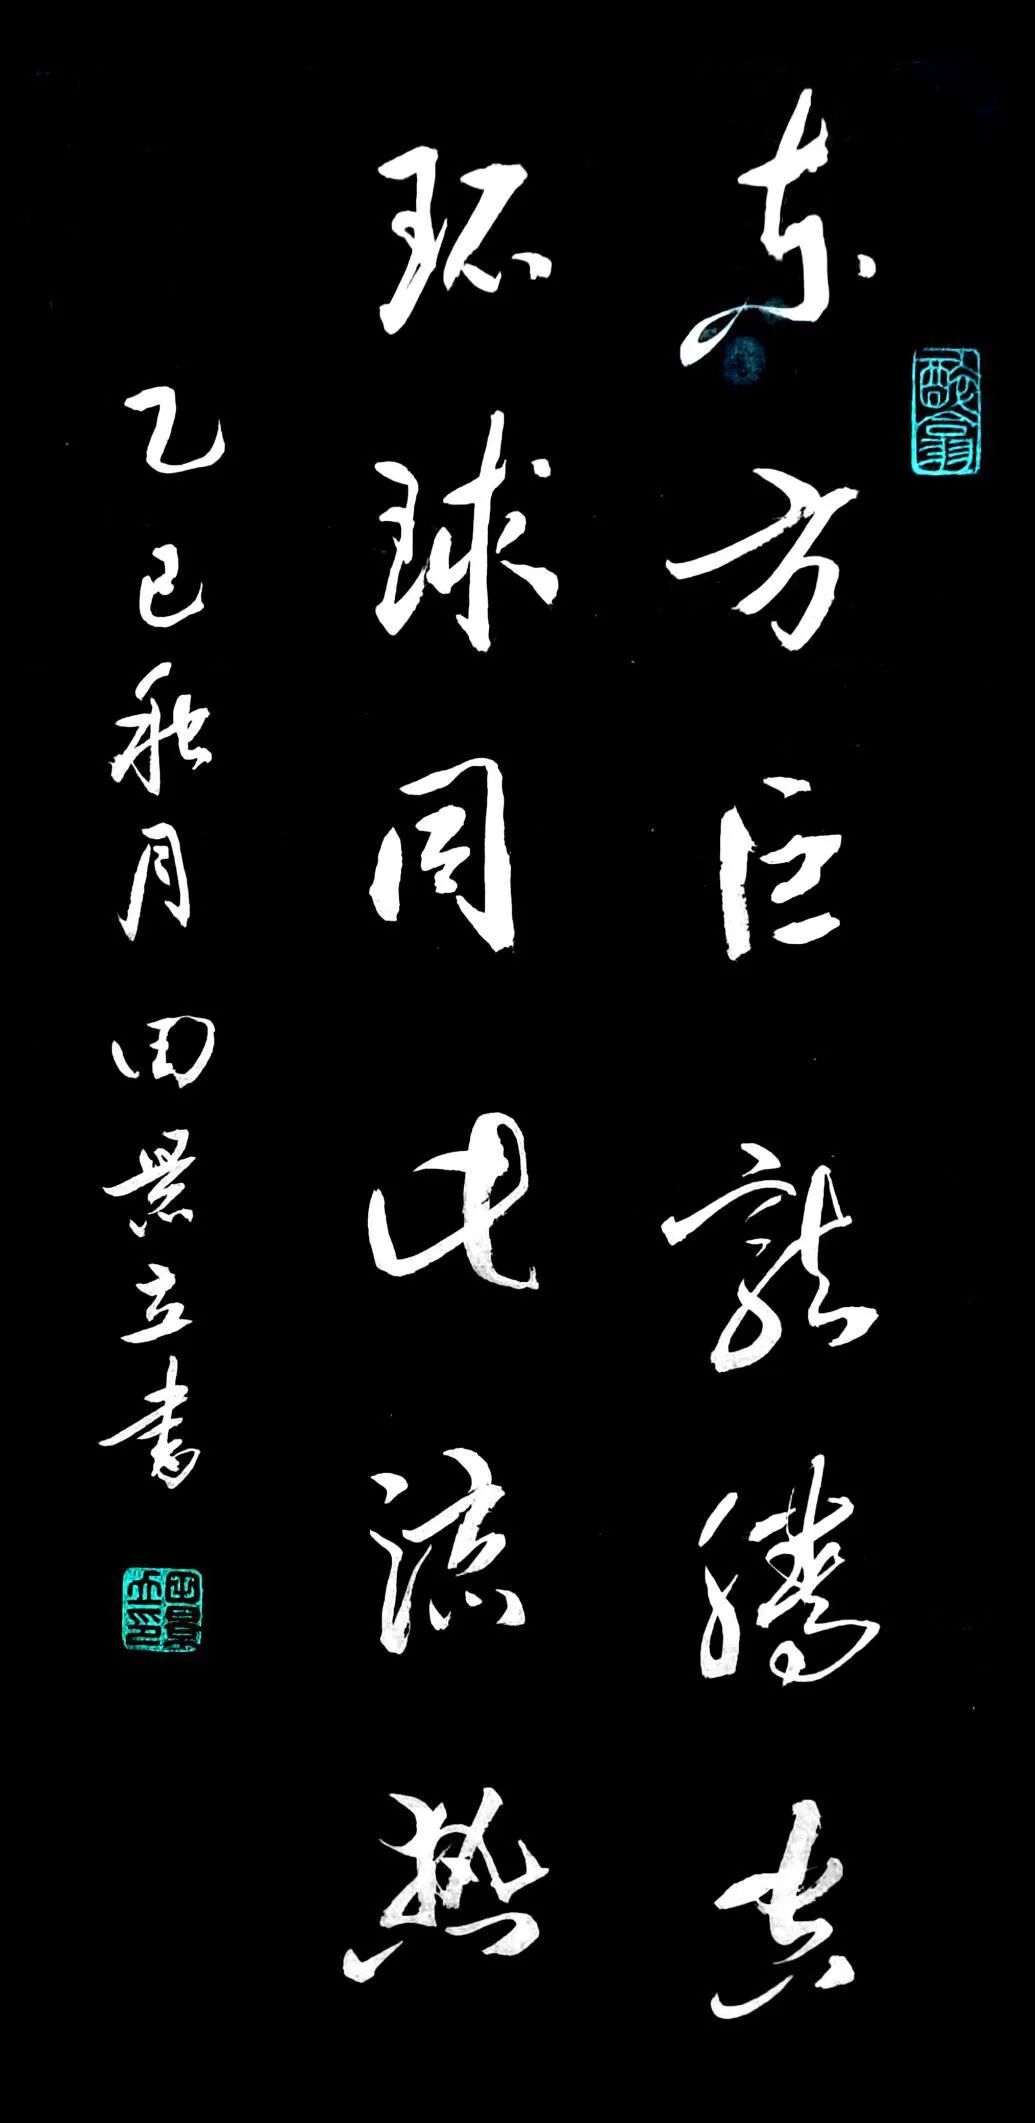 东方巨龍腾
环球同此凉热
乙巳秋月 田景立书
田景立印